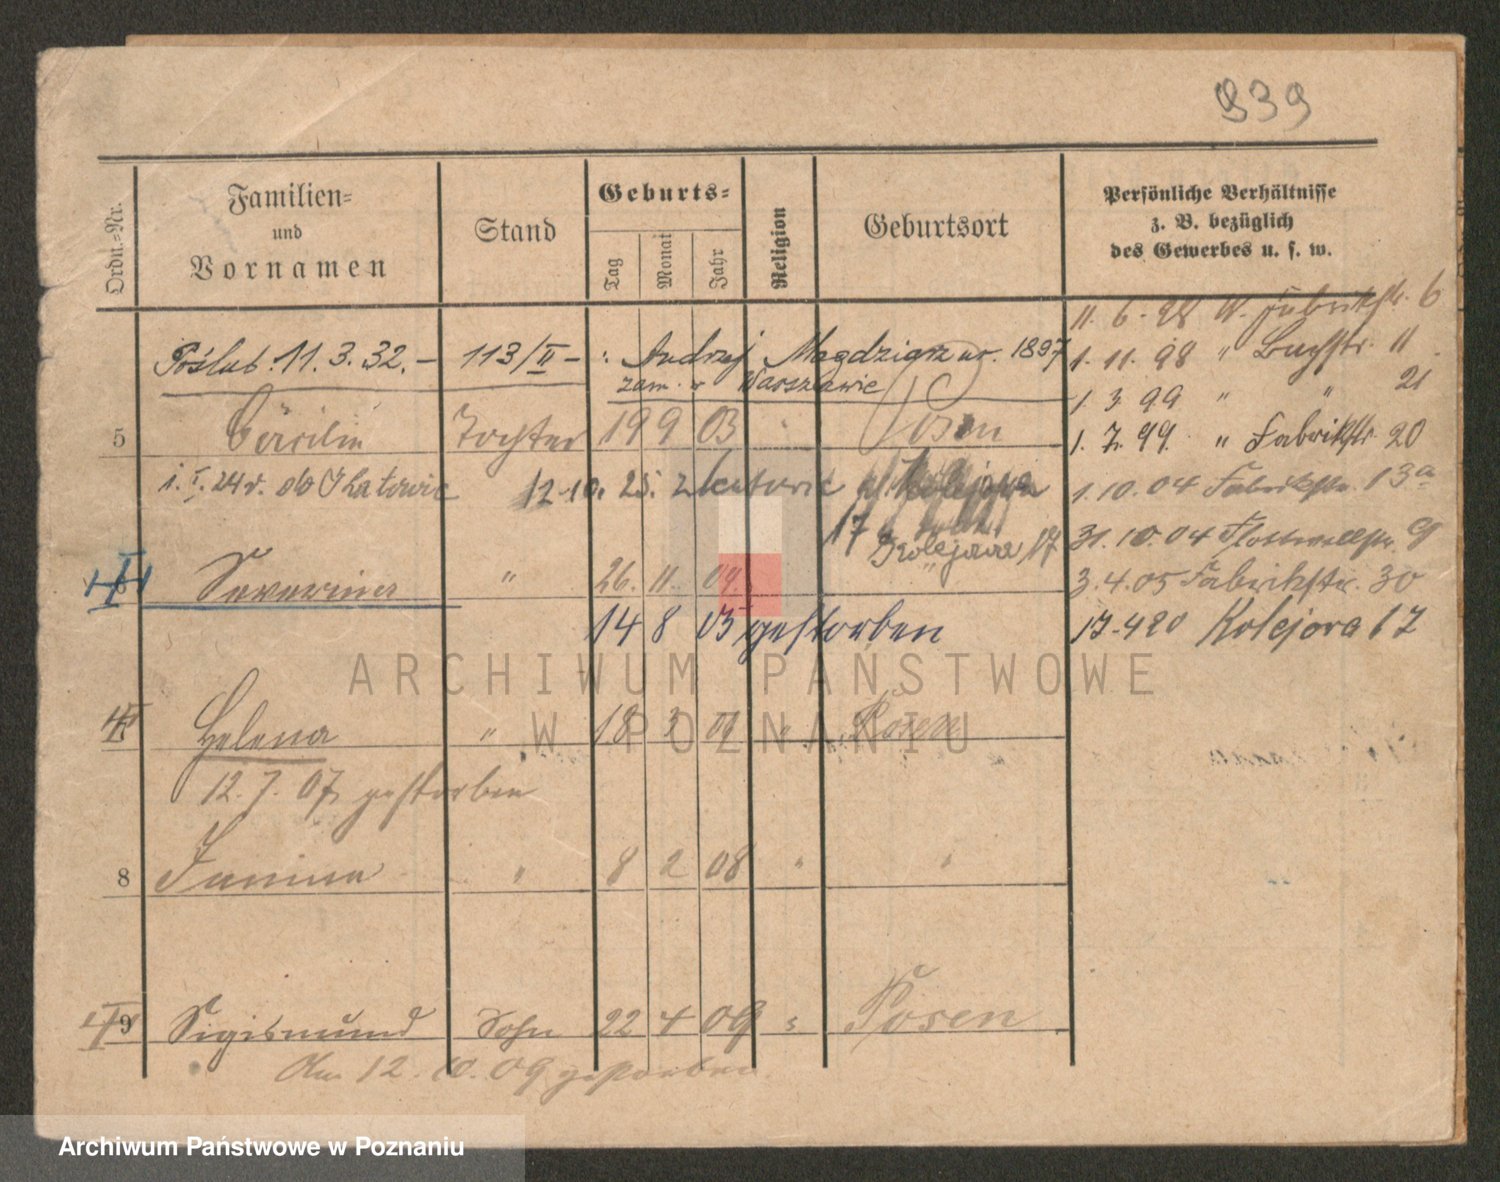 939
Ordn.-Nr.
Familien-
und
Vornamen
Stand
Geburts-
Tag
Monat
Jahr
Religion
Geburtsort
Persönliche Verhältnisse
z. B. bezüglich
des Gewerbes u. s. w.
11. 6. 98 W. Fabrikstr. 6
Poślub. 11. 3. 32. – 113/II – Andrzej Magdziarz ur. 1897
zam. w Warszawie
1. 11. 98 " Buchstr. 11
1. 3 99 " " 21
5 Cäcilie Tochter 19 9 03 " Posen
1. 7. 99. " Fabrikstr. 20
1. I. 24 r. do Katowic 12.10. 25. z Katowic
1. 10. 04 Fabrikstr. 13a
17 Kolejowa 17
31. 10. 04 9
6 Severina " 26. 11. 04. "
3. 4. 05 Fabrikstr. 30
14 8 05 gestorben
17.4 20 Kolejowa 17
7 Helena " 18 3 07 " Posen
12. 7. 07 gestorben
8 Janina " 8 2 08 " "
9 Sigismund Sohn 22 4 09 " Posen
Am 12. 10. 09 gestorben.
ARCHIWUM PAŃSTWOWE
W POZNANIU
Archiwum Państwowe w Poznaniu